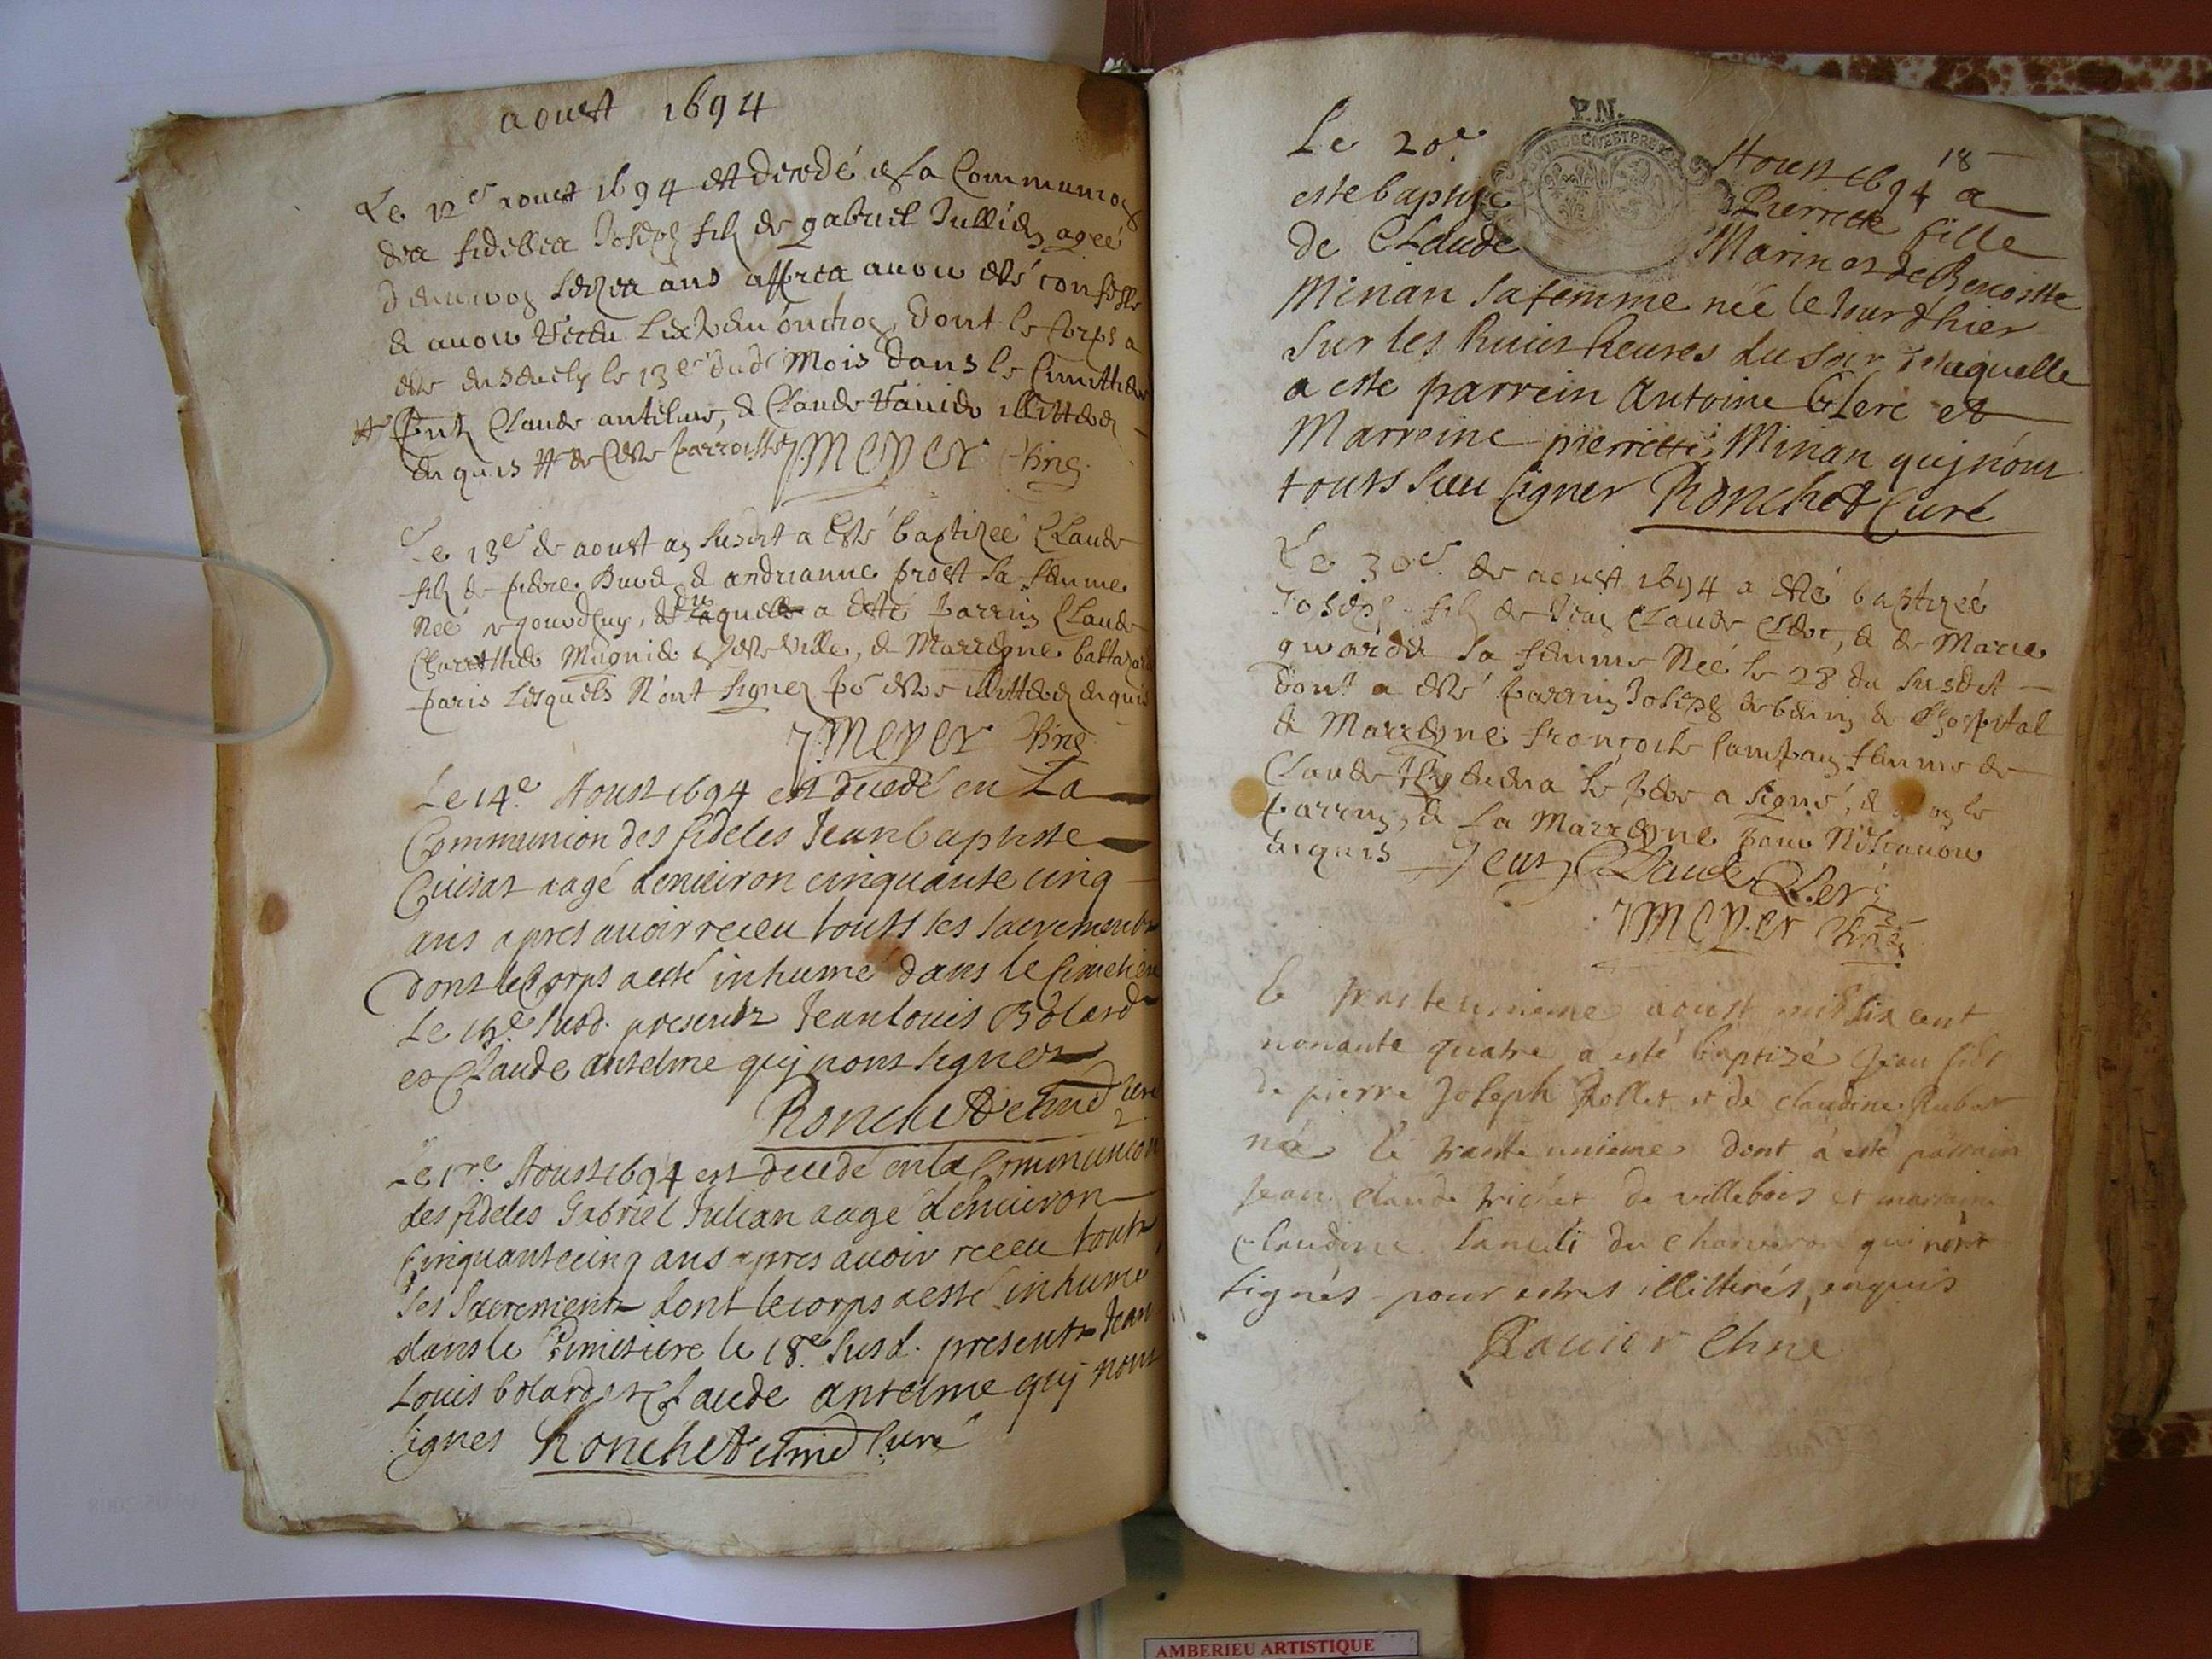 aoust 1694
Le 12e aoust 1694 est decedé en la Communion
des fidelles Joseph fils de gabriel Jullien agee
denviron seizes ans apres avoir esté confessé
& avoir receu L'extreme onction, dont le corps a
esté ensevely le 13e dud mois dans le Cimettiere
Claude antelme, & Claude illitterez
enquis de cette parroisse J MEYER
Le 13e de aoust an susdit a esté baptizeé Claude
fils de pierre & de andrianne prost sa femme
Neé & a esté parrin Claude
ville, & Marreyne
paris Lesquels N'ont signez po estre illitterez enquis
J MEYER
Le 14e Aoust 1694 est decedé en La
Communion des fideles Jean baptiste
Cuisat aagé denuiron cinquante cinq
ans apres auoir receu touts ses sacrements
dont le Corps a esté inhumé dans le Cimetiere
Le susd. presents Jean Louis Bolard
et Claude antelme quj nont signez
Ronchet Curé
Le 17e Aoust 1694 est decedé en la Communion
des fideles Gabriel Julian aagé denuiron
Cinquante cinq ans apres auoir receu touts
ses Sacrements dont le corps a esté inhumé
dans le Cimetiere le 18e Susd. presents Jean
Louis bolard et Claude antelme quj nont
signes Ronchet Curé
P.N.
18
Le 20e Aoust 1694 a
este baptise Pierrette fille
de Claude Marin et de Benoitte
Minan sa femme née le Jour d'hier
sur les huict heures du soir de laquelle
a este parrein Antoine Clerc et
Marreine pierrette Minan quj n'ont
touts sceu signer Ronchet Curé
Le 30e de aoust 1694 a esté baptizeé
Joseph fils de Jean Claude Clerc, & de Marie
sa femme Neé le 28 du susdit
dont a esté parrin Joseph de l'hospital
& Marreyne françoise femme de
Claude le pere a signé, & non le
parrin, & la Marreyne pour N'sçavoir
enquis Jean Claude Clerc
J MEYER
le trante unieme aoust mil six cent
nonante quatre a esté baptisé Jean fils
de pierre Joseph Rollet et de claudine
né le trante unieme dont a esté parrain
Jean claude trichet de villebois et marraine
Claudine du qui n'ont
signés pour estres illitterés, enquis
Rauier
AMBERIEU ARTISTIQUE